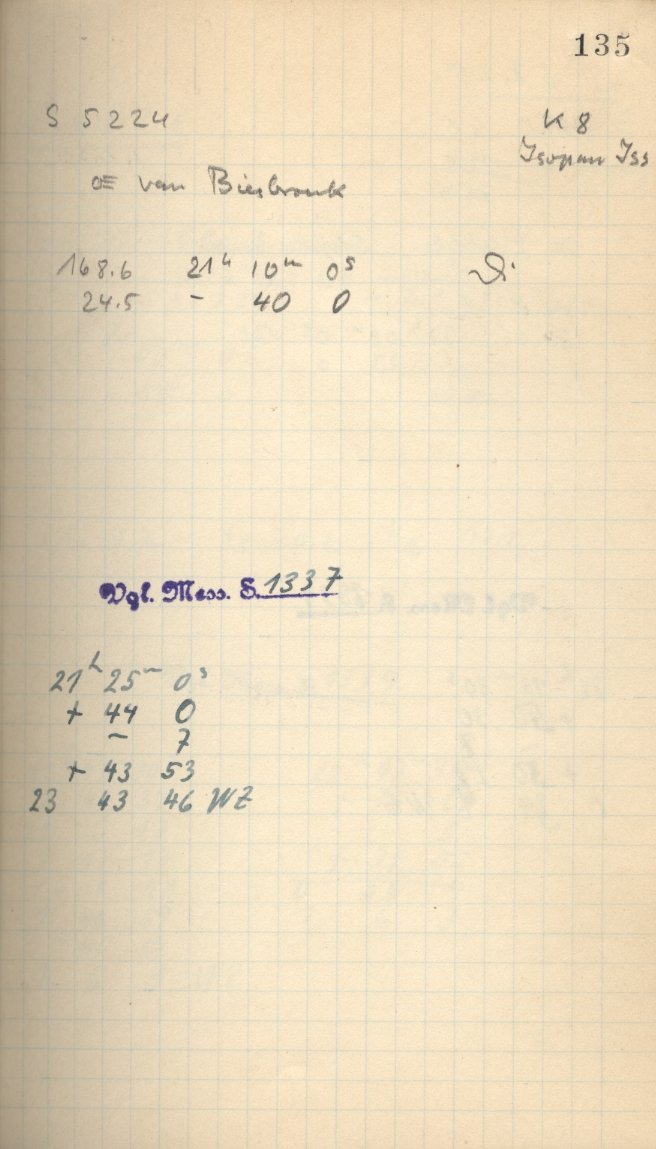 135
S 5224 K 8
Isopan Iss
van Biesbrouk
168.6 21h 10m 0s
24.5 - 40 0
Vgl. Mess. S. 1337
21h 25m 0s
+ 44 0
- 7
+ 43 53
23 43 46 WZ